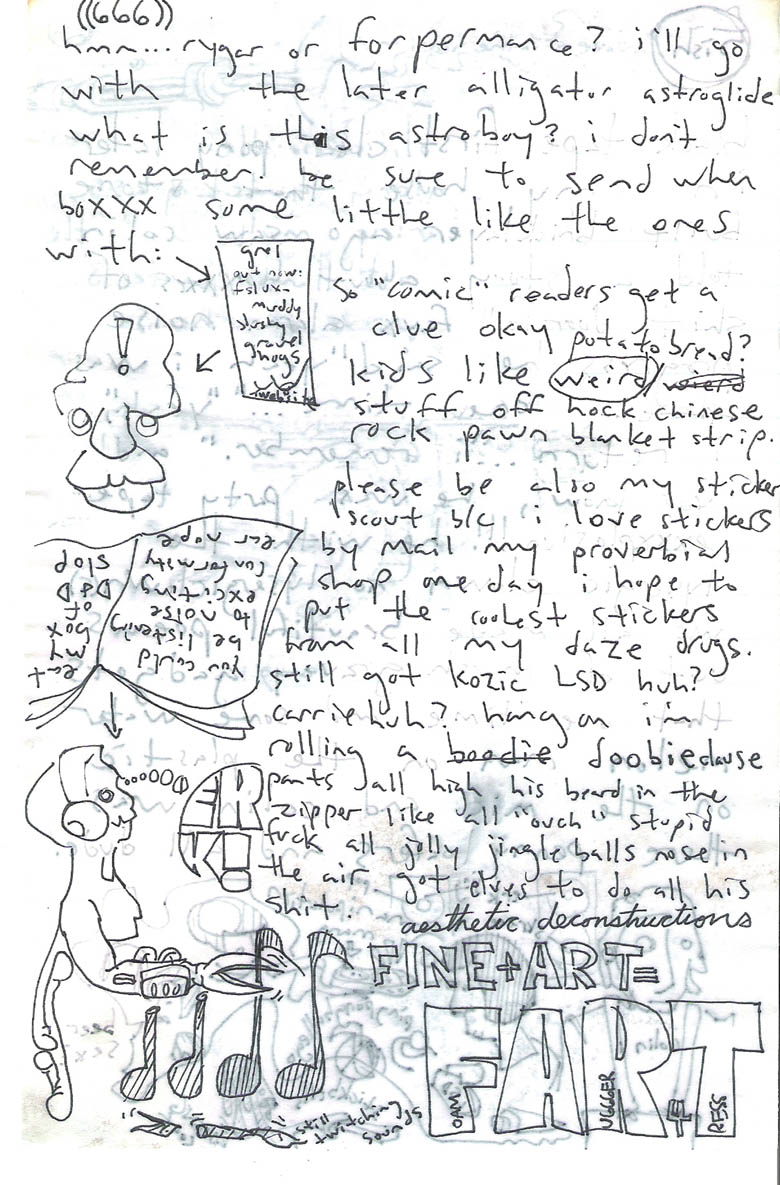 ((666))
hmm... rygar or forpermance? i'll go
with the later alligator astroglide
what is this astroboy? i don't
remember. be sure to send when
boxxx some little like the ones
with:
grel
out now:
fslux-
muddy
slushy
gravel
hugs
website
!
so "comic" readers get a
clue okay potato bread?
kids like weird/ wierd
stuff off hock chinese
rock pawn blanket strip.
please be also my sticker
scout b/c i love stickers
by mail my proverbial
shop one day i hope to
put the coolest stickers
from all my daze drugs.
still got kozic LSD huh?
carrie huh? hang on i'm
rolling a boodie doobieclause
pants all high his beard in the
zipper like all "ouch" stupid
fuck all jolly jingle balls nose in
the air got elves to do all his
shit.
eat
my
box
of
DaD
slop
you could
be listening
to noise
exciting
conformity
ear nope
Doooo....
ERK!
aesthetic deconstructions
FINE+ART=
FART
OAM
UGGGER
&
RESS
still
twitching
sounds